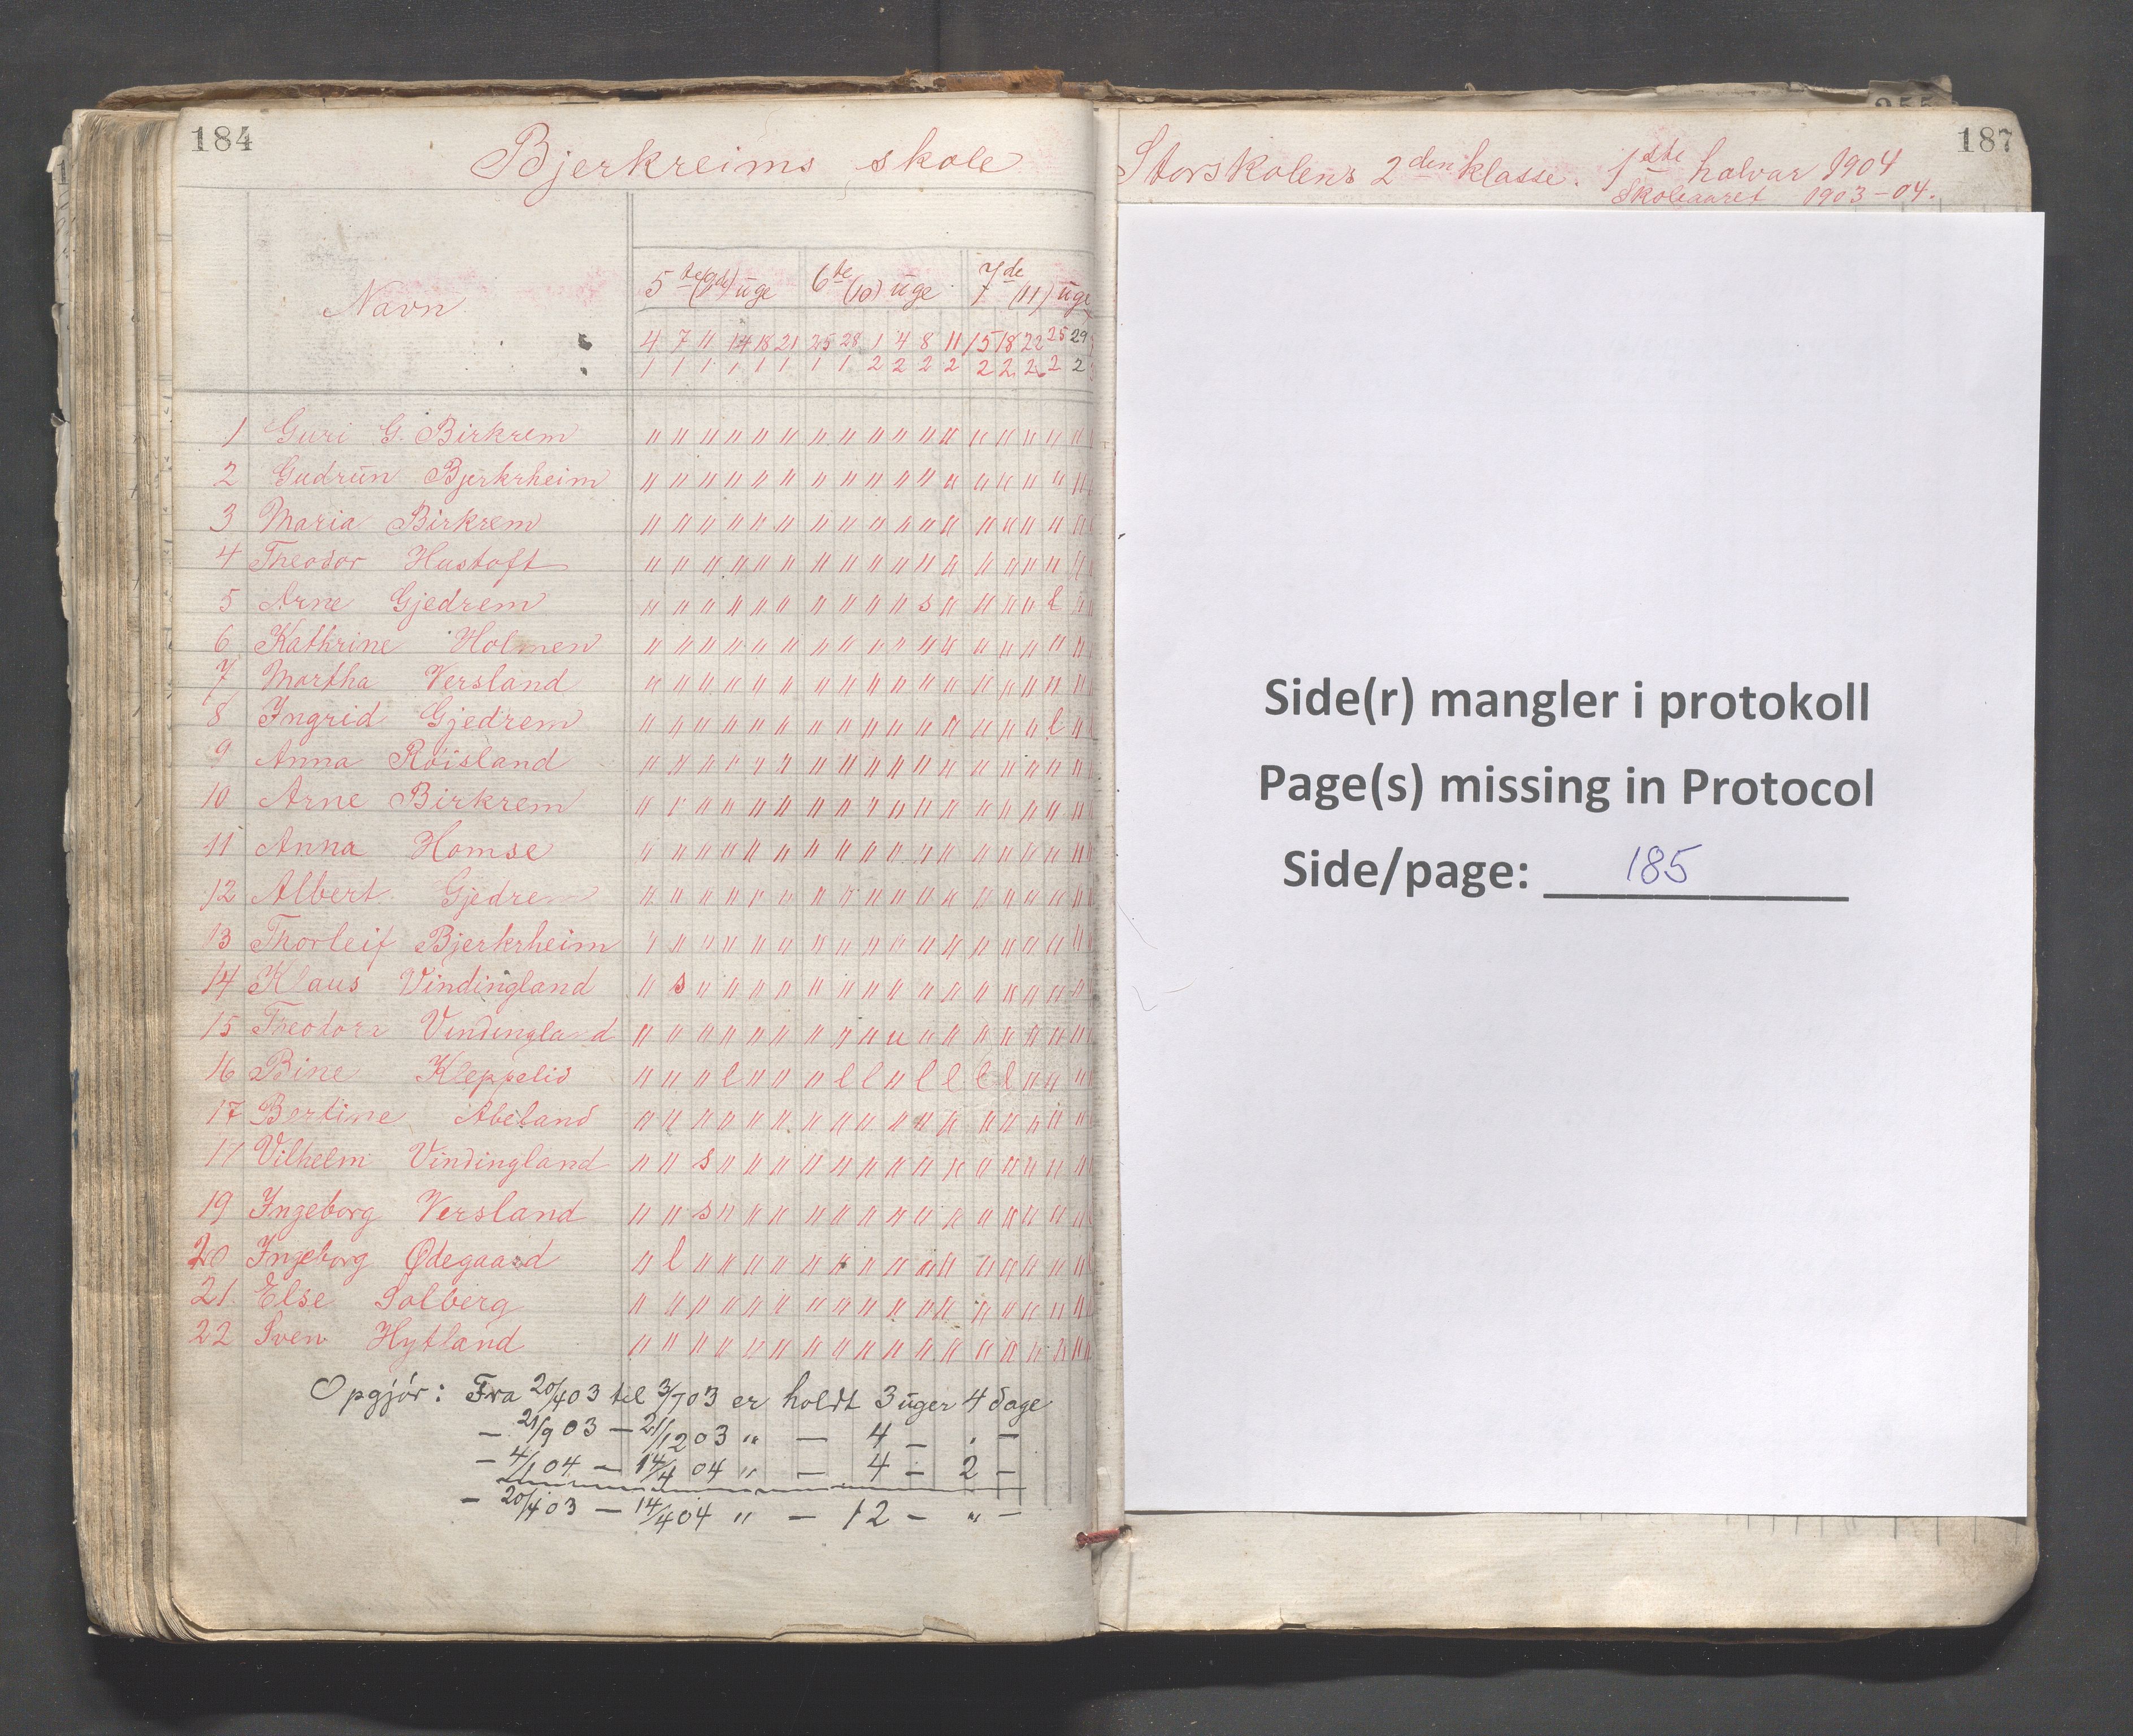 184
Bjerkreims skole
Navn
5te (9de) uge 6te (10) uge 7de (11) uge
4 7 11 14 18 21 25 28 1 4 8 11 15 18 22 25 29
1 1 1 1 1 1 1 1 2 2 2 2 2 2 2 2 2
1 Guri G. Birkrem " " " " " " " " " " " " " " " " "
2 Gudrun Bjerkrheim " " " " " " " " " " " " " " " " "
3 Maria Birkrem " " " " " " " " " " " " " " " " "
4 Theodor Hustoft " " " " " " " " " " " " " " " " "
5 Arne Gjedrem " " " " " " " " " " s " " " " l "
6 Kathrine Holmen " " " " " " " " " " " " " " " " "
7 Martha Versland " " " " " " " " " " " " " " " " "
8 Ingrid Gjedrem " " " " " " " " " " " " " " " l "
9 Anna Røisland " " " " " " " " " " " " " " " " "
10 Arne Birkrem " " " " " " " " " " " " " " " " "
11 Anna Homse " " " " " " " " " " " " " " " " "
12 Albert Gjedrem " " " " " " " " " " " " " " " " "
13 Thorleif Bjerkrheim " " " " " " " " " " " " " " " " "
14 Klaus Vindingland " s " " " " " " " " " " " " " " "
15 Theodora Vindingland " " " " " " " " " u " " " " " " "
16 Bine Kleppelid " " " l " " " l l " l l l l " " "
17 Bertine Åbeland " " " " " " " " " " " " " " " " "
17 Vilhelm Vindingland " " s " " " " " " " " " " " " " "
19 Ingeborg Versland " " s " " " " " " " " " " " " " "
20 Ingeborg Ødegaard " l " " " " " " " " " " " " " " "
21 Else Solberg " " " " " " " " " " " " " " " " "
22 Sven Hytland " " " " " " " " " " " " " " " " "
Opgjør: Fra 20/4 03 til 3/7 03 er holdt 3 uger 4 dage
— 21/9 03 — 21/12 03 " — 4 — " —
— 4/1 04 — 14/4 04 " — 4 — 2 —
— 20/4 03 — 14/4 04 " — 12 — " —
187
Storskolens 2den klasse. 1ste halvar 1904
Skoleaaret 1903-04.
Side(r) mangler i protokoll
Page(s) missing in Protocol
Side/page: 185